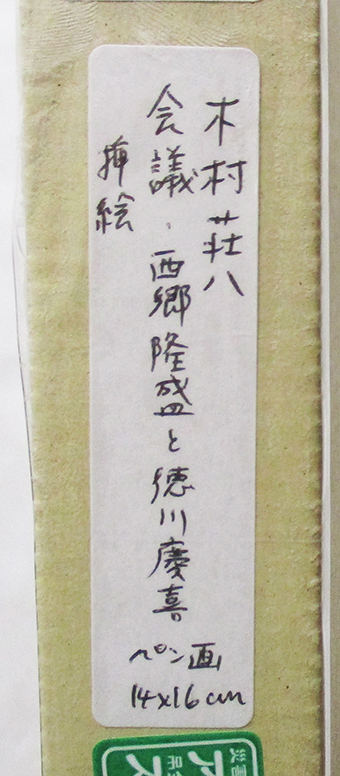 木村荘八
会議・西郷隆盛と徳川慶喜
挿絵
ペン画
14x16cm